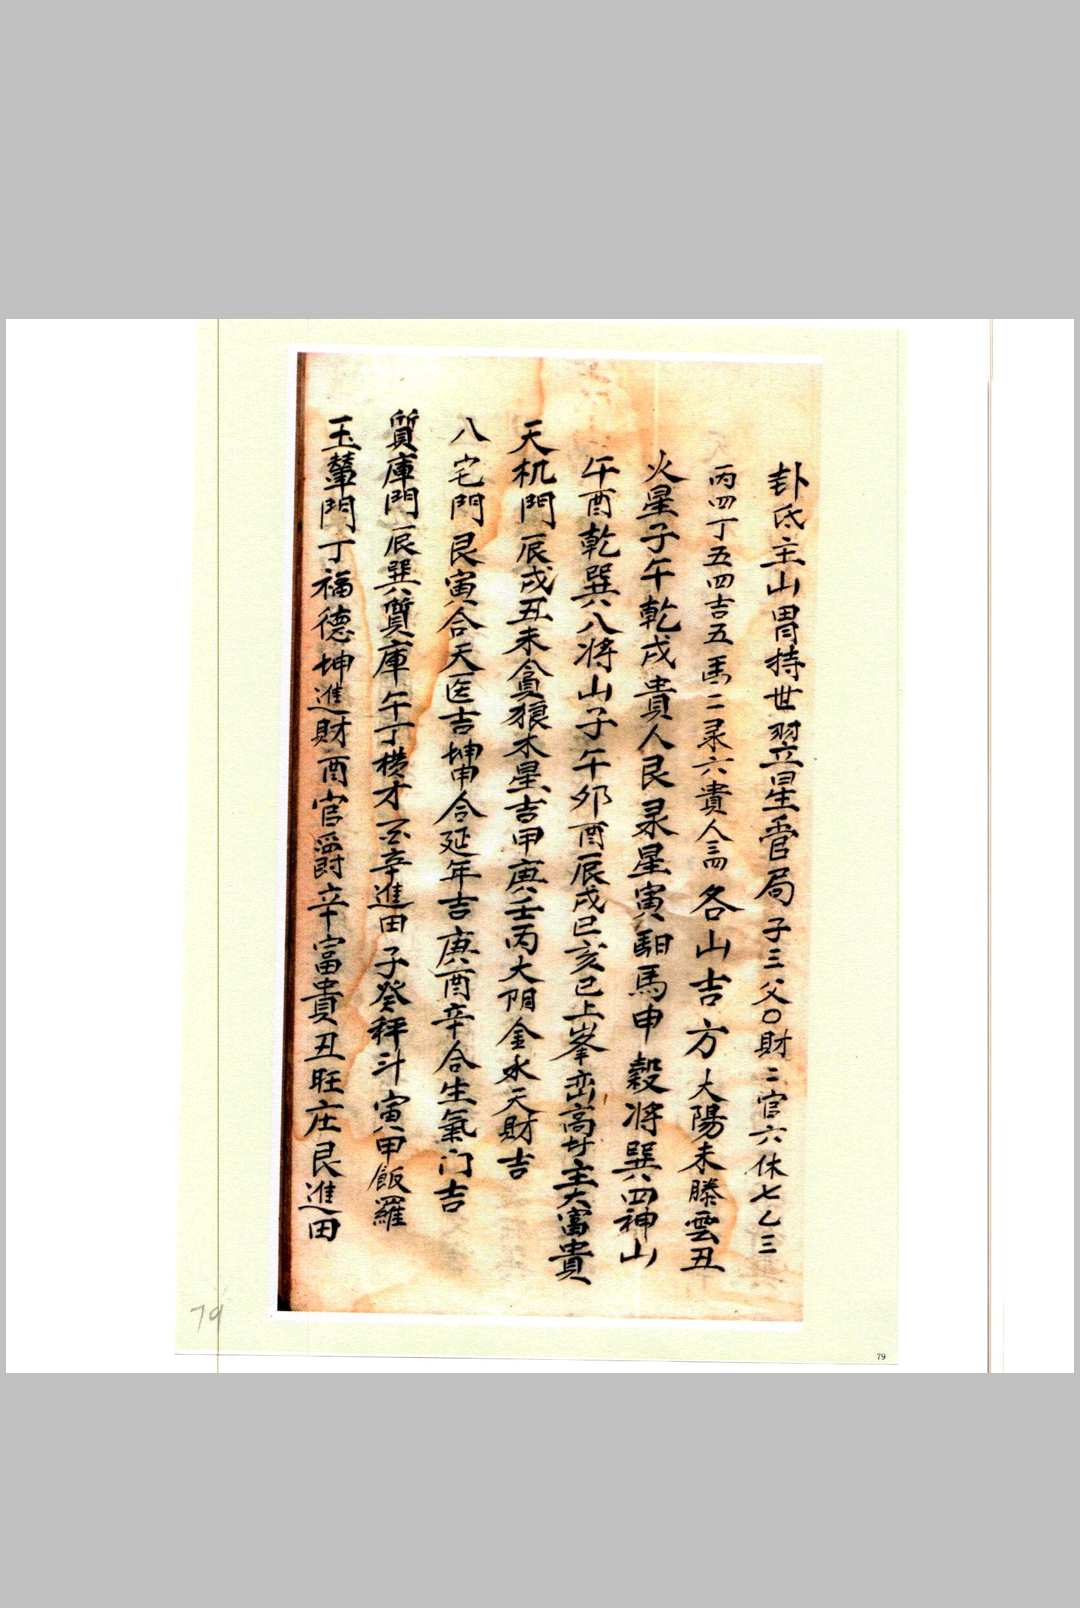 卦氐主山胃持世翌星畓局子三父〇財二官六休七乙三
丙四丁五四吉五馬二录六貴人三四各山吉方太陽未滕雲丑
火星子午乾戌貴人艮录星寅馹馬申穀将巽四神山
午酉乾巽八將山子午卯酉辰戌巳亥已上峯峦高圹主大富貴
天机門辰戌丑未貪狼木星吉甲庚壬丙太阴金水天財吉
八宅門艮寅合天医吉坤申合延年吉庚酉辛合生氣门吉
質庫門辰巽質庫午丁横才 辛進田子癸秤斗寅甲飯羅
玉輦門丁福德坤進財酉官爵辛富貴丑旺庄艮進田
79
79